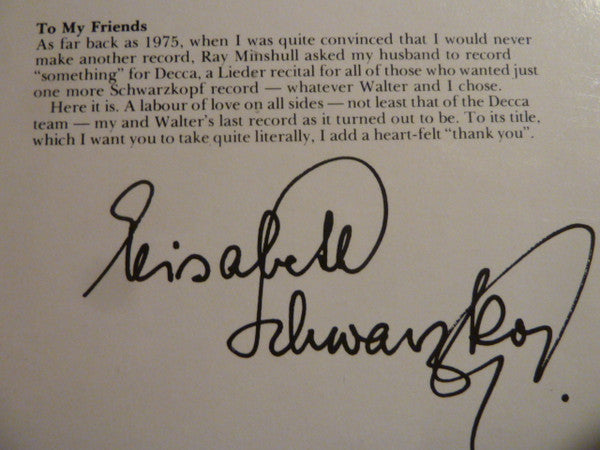 To My Friends
As far back as 1975, when I was quite convinced that I would never
make another record, Ray Minshull asked my husband to record
“something” for Decca, a Lieder recital for all of those who wanted just
one more Schwarzkopf record — whatever Walter and I chose.
Here it is. A labour of love on all sides — not least that of the Decca
team — my and Walter's last record as it turned out to be. To its title,
which I want you to take quite literally, I add a heart-felt “thank you”.
Elisabeth
Schwarzkopf.